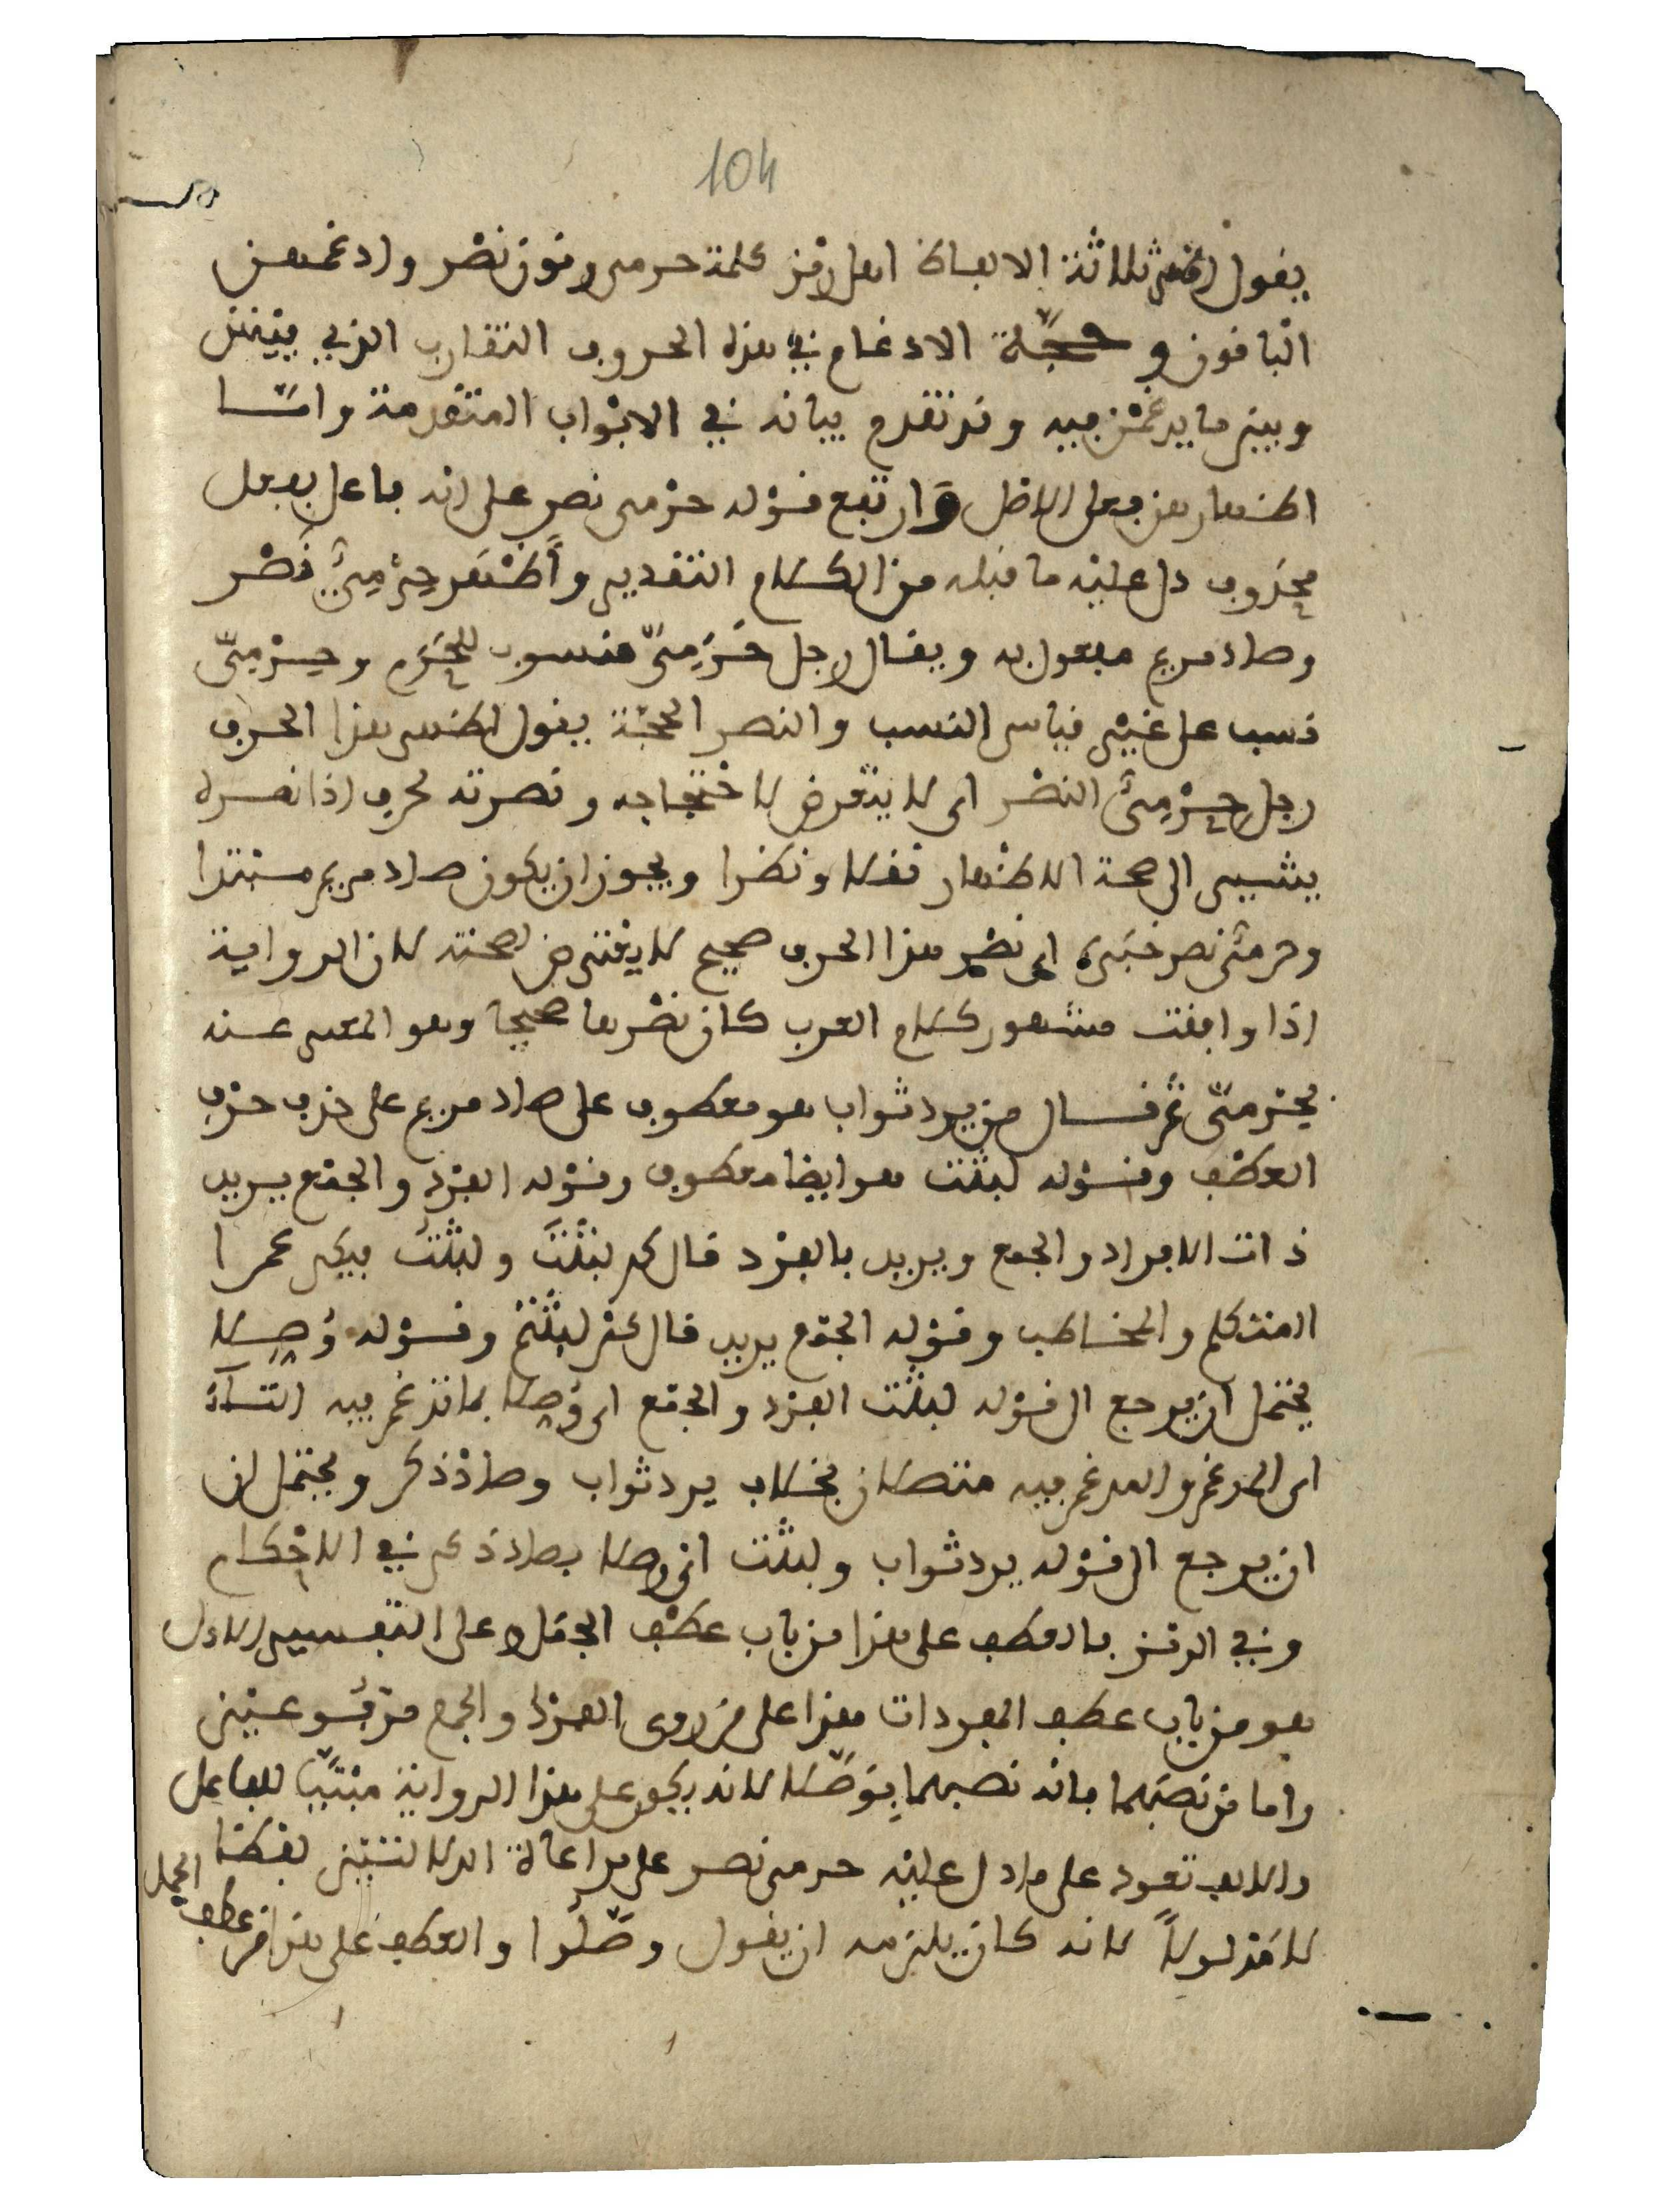 104
يقول اظهر ثلاثة الالفاظ اهل رمز كلمة حرمى ونون نصر وادغمهن
الباقون وحجة الادغام في هذه الحروف التقارب الذي بينهن
وبين ما يدغمن فيه وقد تقدم بيانه في الابواب المتقدمة واما
الاظهار فهو على الاصل وارتفع قوله حرمى نصر على انه فاعل بفعل
محذوف دل عليه ما قبله من الكلام التقدير وأظهر حِرْمِىُّ نصْر
وصاد مريم مفعول به ويقال رجل حَرَمِىّ منسوب للحَرَم وحِرْمِىّ
نسب على غير قياس النسب والنصر الحجة يقول اظهر هذا الحرف
رجل حِرْمِىُّ النصْر اى لا يتعرض لاحتجاجه ونصرته لحرف اذا نصره
يشير الى صحة الاظهار نقلا ونظرا ويجوز ان يكون صاد مريم مبتدا
وحرمىّ نصر خبَره اى نصْر هذا الحرف صحيح لا يعترض لصحته لان الرواية
اذا وافقت مشهور كلام العرب كان نصْرها صحيحا وهو المعبر عنه
بحرمىّ ثم قال من يرد ثواب هو معطوف على صاد مريم على حذف حرف
العطف وقوله لبثت هو ايضا معطوف وقوله الفرْد والجمْع يريد
ذات الافراد والجمع ويريد بالفرْد قال كم لبثْتَ ولبثْتُ فيكم عمرا
المتكلم والمخاطب وقوله الجمْع يريد قال كم لبثْتم وقوله وُصِلا
يحتمل ان يرجع الى قوله لبثْت الفرْد والجمْع اى وُصِلا بما تدغم فيه التاء
اى المدغم والمدغم فيه متصلان بخلاف يرد ثواب وصاد ذكر ويحتمل ان
ان يرجع الى قوله يرد ثواب ولبثْت اى وصلا بصاد ذكر في الاحكام
وفي الرمز فالعطف على هذا من باب عطْف الجمَل وعلى التفسير الاول
هو من باب عطف المفردات هذا على من روى الفرْد والجمع مرفوعين
واما من نصبَهما فانه نصبهما بِوَصَّلا لانه يكون على هذا الرواية مبنيّا للفاعل
والالف تعود على ما دل عليْه حرمى نصر على مراعاة الدلالتين لفظا
لا مدلولاً لانه كان يلزمه ان يقول وصّلُوا والعطف على هذا من عطف الجمل